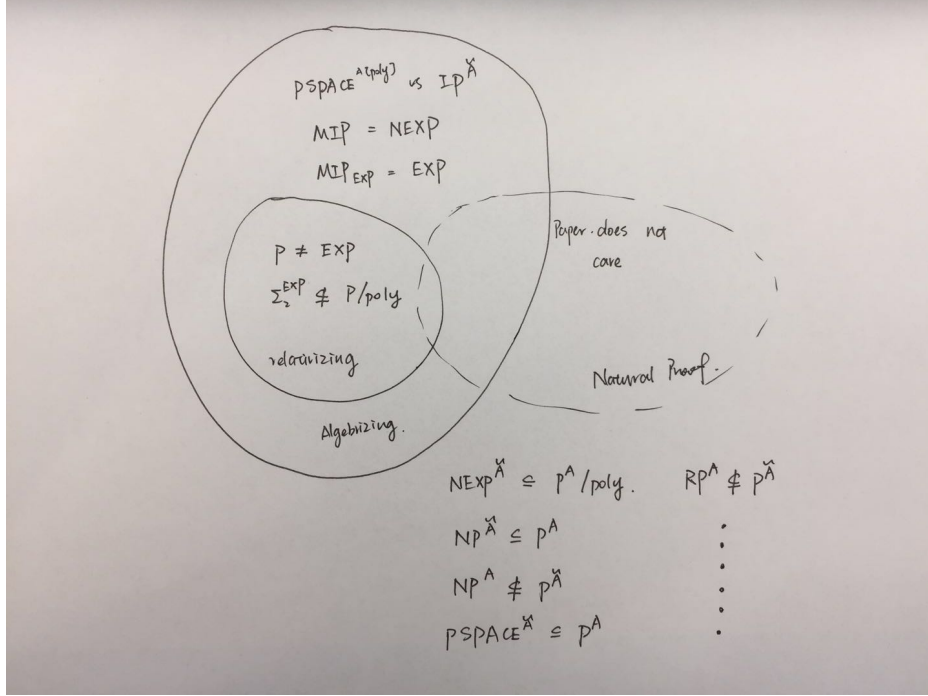 PSPACE^A[poly] vs IP^Ã
MIP = NEXP
MIP_EXP = EXP
P ≠ EXP
Σ₂^EXP ⊄ P/poly
relativizing
Algebrizing.
Paper does not
care
Natural Proof.
NEXP^Ã ⊆ P^A/poly.
NP^Ã ⊆ P^A
NP^A ⊄ P^Ã
PSPACE^Ã ⊆ P^A
RP^A ⊄ P^Ã